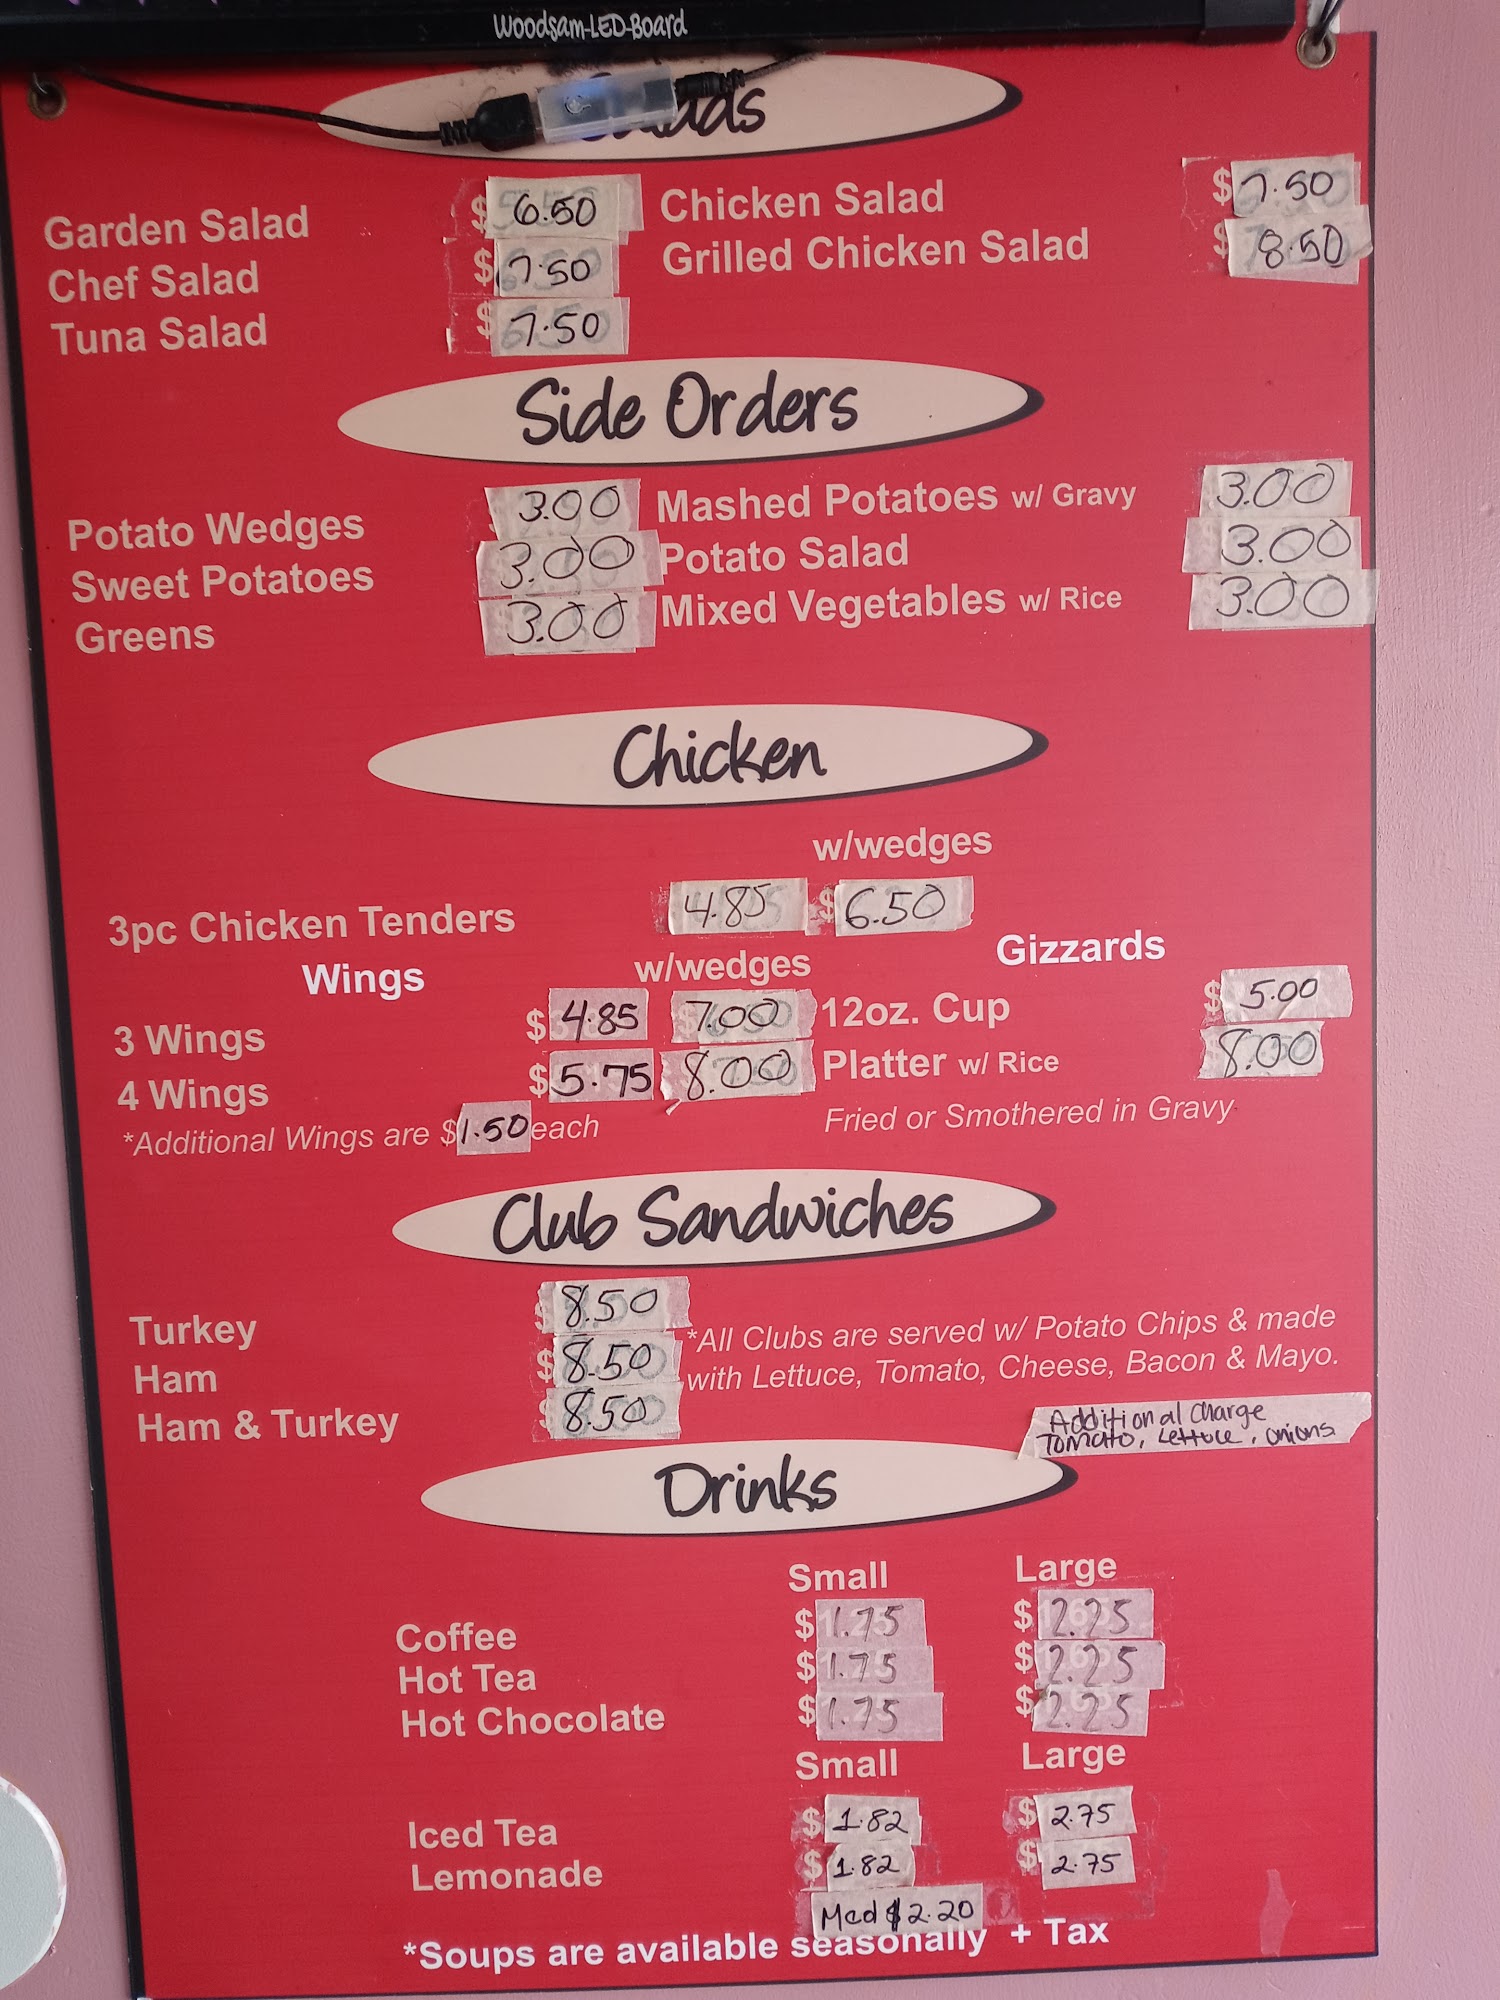 Woodsam-LED-Board
Salads
Garden Salad $ 6.50 Chicken Salad $ 7.50
Chef Salad $ 7.50 Grilled Chicken Salad $ 8.50
Tuna Salad $ 7.50
Side Orders
Potato Wedges 3.00 Mashed Potatoes w/ Gravy 3.00
Sweet Potatoes 3.00 Potato Salad 3.00
Greens 3.00 Mixed Vegetables w/ Rice 3.00
Chicken
w/wedges
3pc Chicken Tenders 4.85 $ 6.50
Wings w/wedges Gizzards
3 Wings $ 4.85 7.00 12oz. Cup $ 5.00
4 Wings $ 5.75 8.00 Platter w/ Rice 8.00
*Additional Wings are $1.50 each Fried or Smothered in Gravy
Club Sandwiches
Turkey 8.50 *All Clubs are served w/ Potato Chips & made
Ham $ 8.50 with Lettuce, Tomato, Cheese, Bacon & Mayo.
Ham & Turkey 8.50
Additional Charge
Tomato, Lettuce, onions
Drinks
Small Large
Coffee $ 1.75 $ 2.25
Hot Tea $ 1.75 $ 2.25
Hot Chocolate $ 1.75 $ 2.25
Small Large
Iced Tea $ 1.82 $ 2.75
Lemonade $ 1.82 $ 2.75
Med $2.20
*Soups are available seasonally + Tax